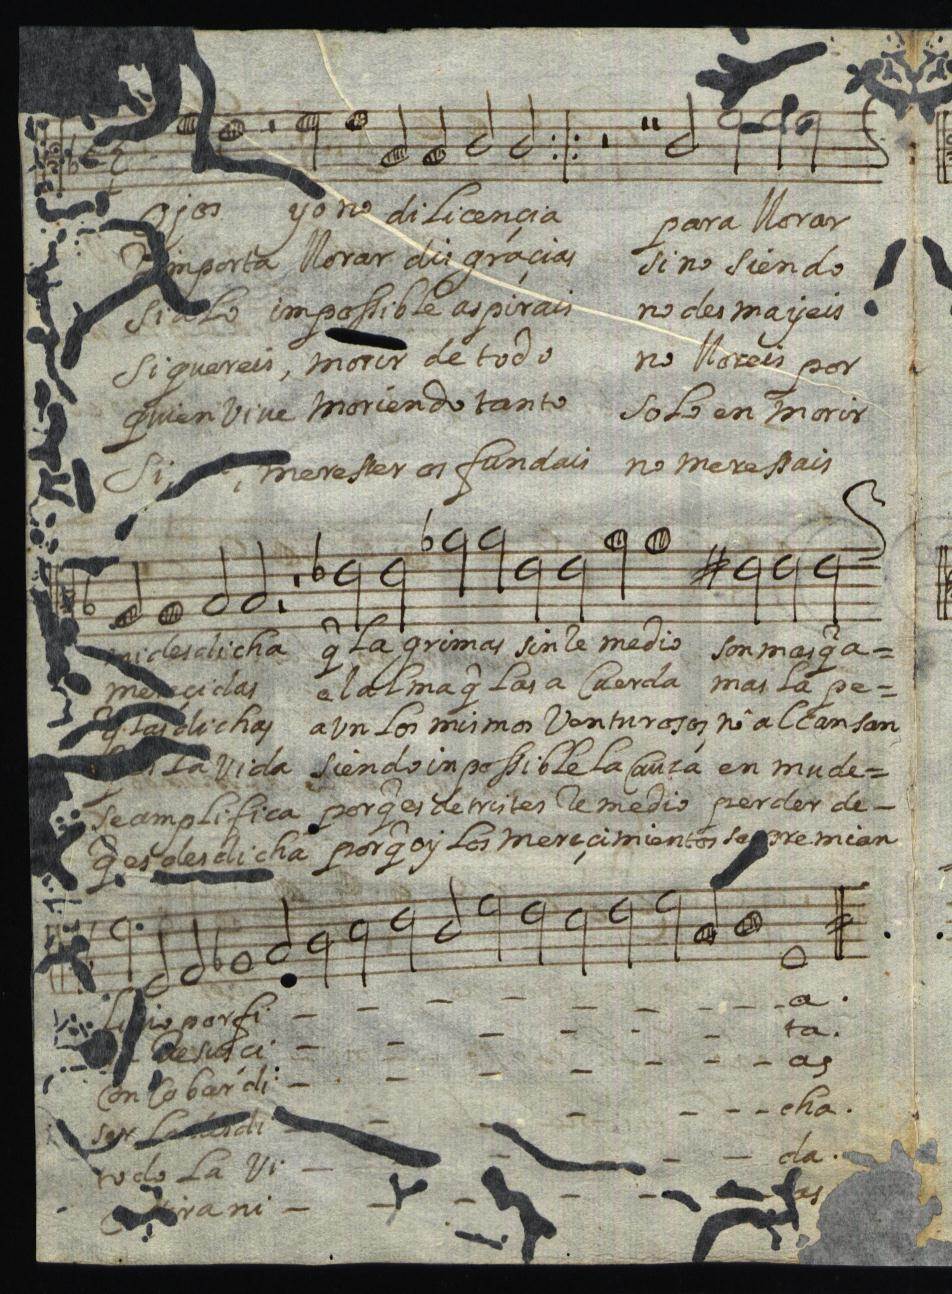 ojos yo no di licençia para llorar
importa llorar disgraçias si no siendo
si a lo impossible aspirais no desmayeis
si quereis, morir de todo no lloreis por
quien viue moriendo tanto solo en morir
si, meresser os fundais no meressais
mi desdicha q̃ lagrimas sin remedio son mas q̃ a=
mereçidas el alma q̃ las acuerda mas la pe=
q̃ las dichas avn los mismos venturosos, no alcansan
la vida siendo inpossible la cauza en mude=
se amplifica porq̃ es de tristes remedio perder de-
q̃ es desdicha porq̃ oy los mereçimientos se premian
porfi - - - - - - - a.
- - - - - - - ta.
con cobardi - - - - - - - as
ser - - - - - - - cha.
todo la vi - - - - - - - da.
tirani - - - - - - - as